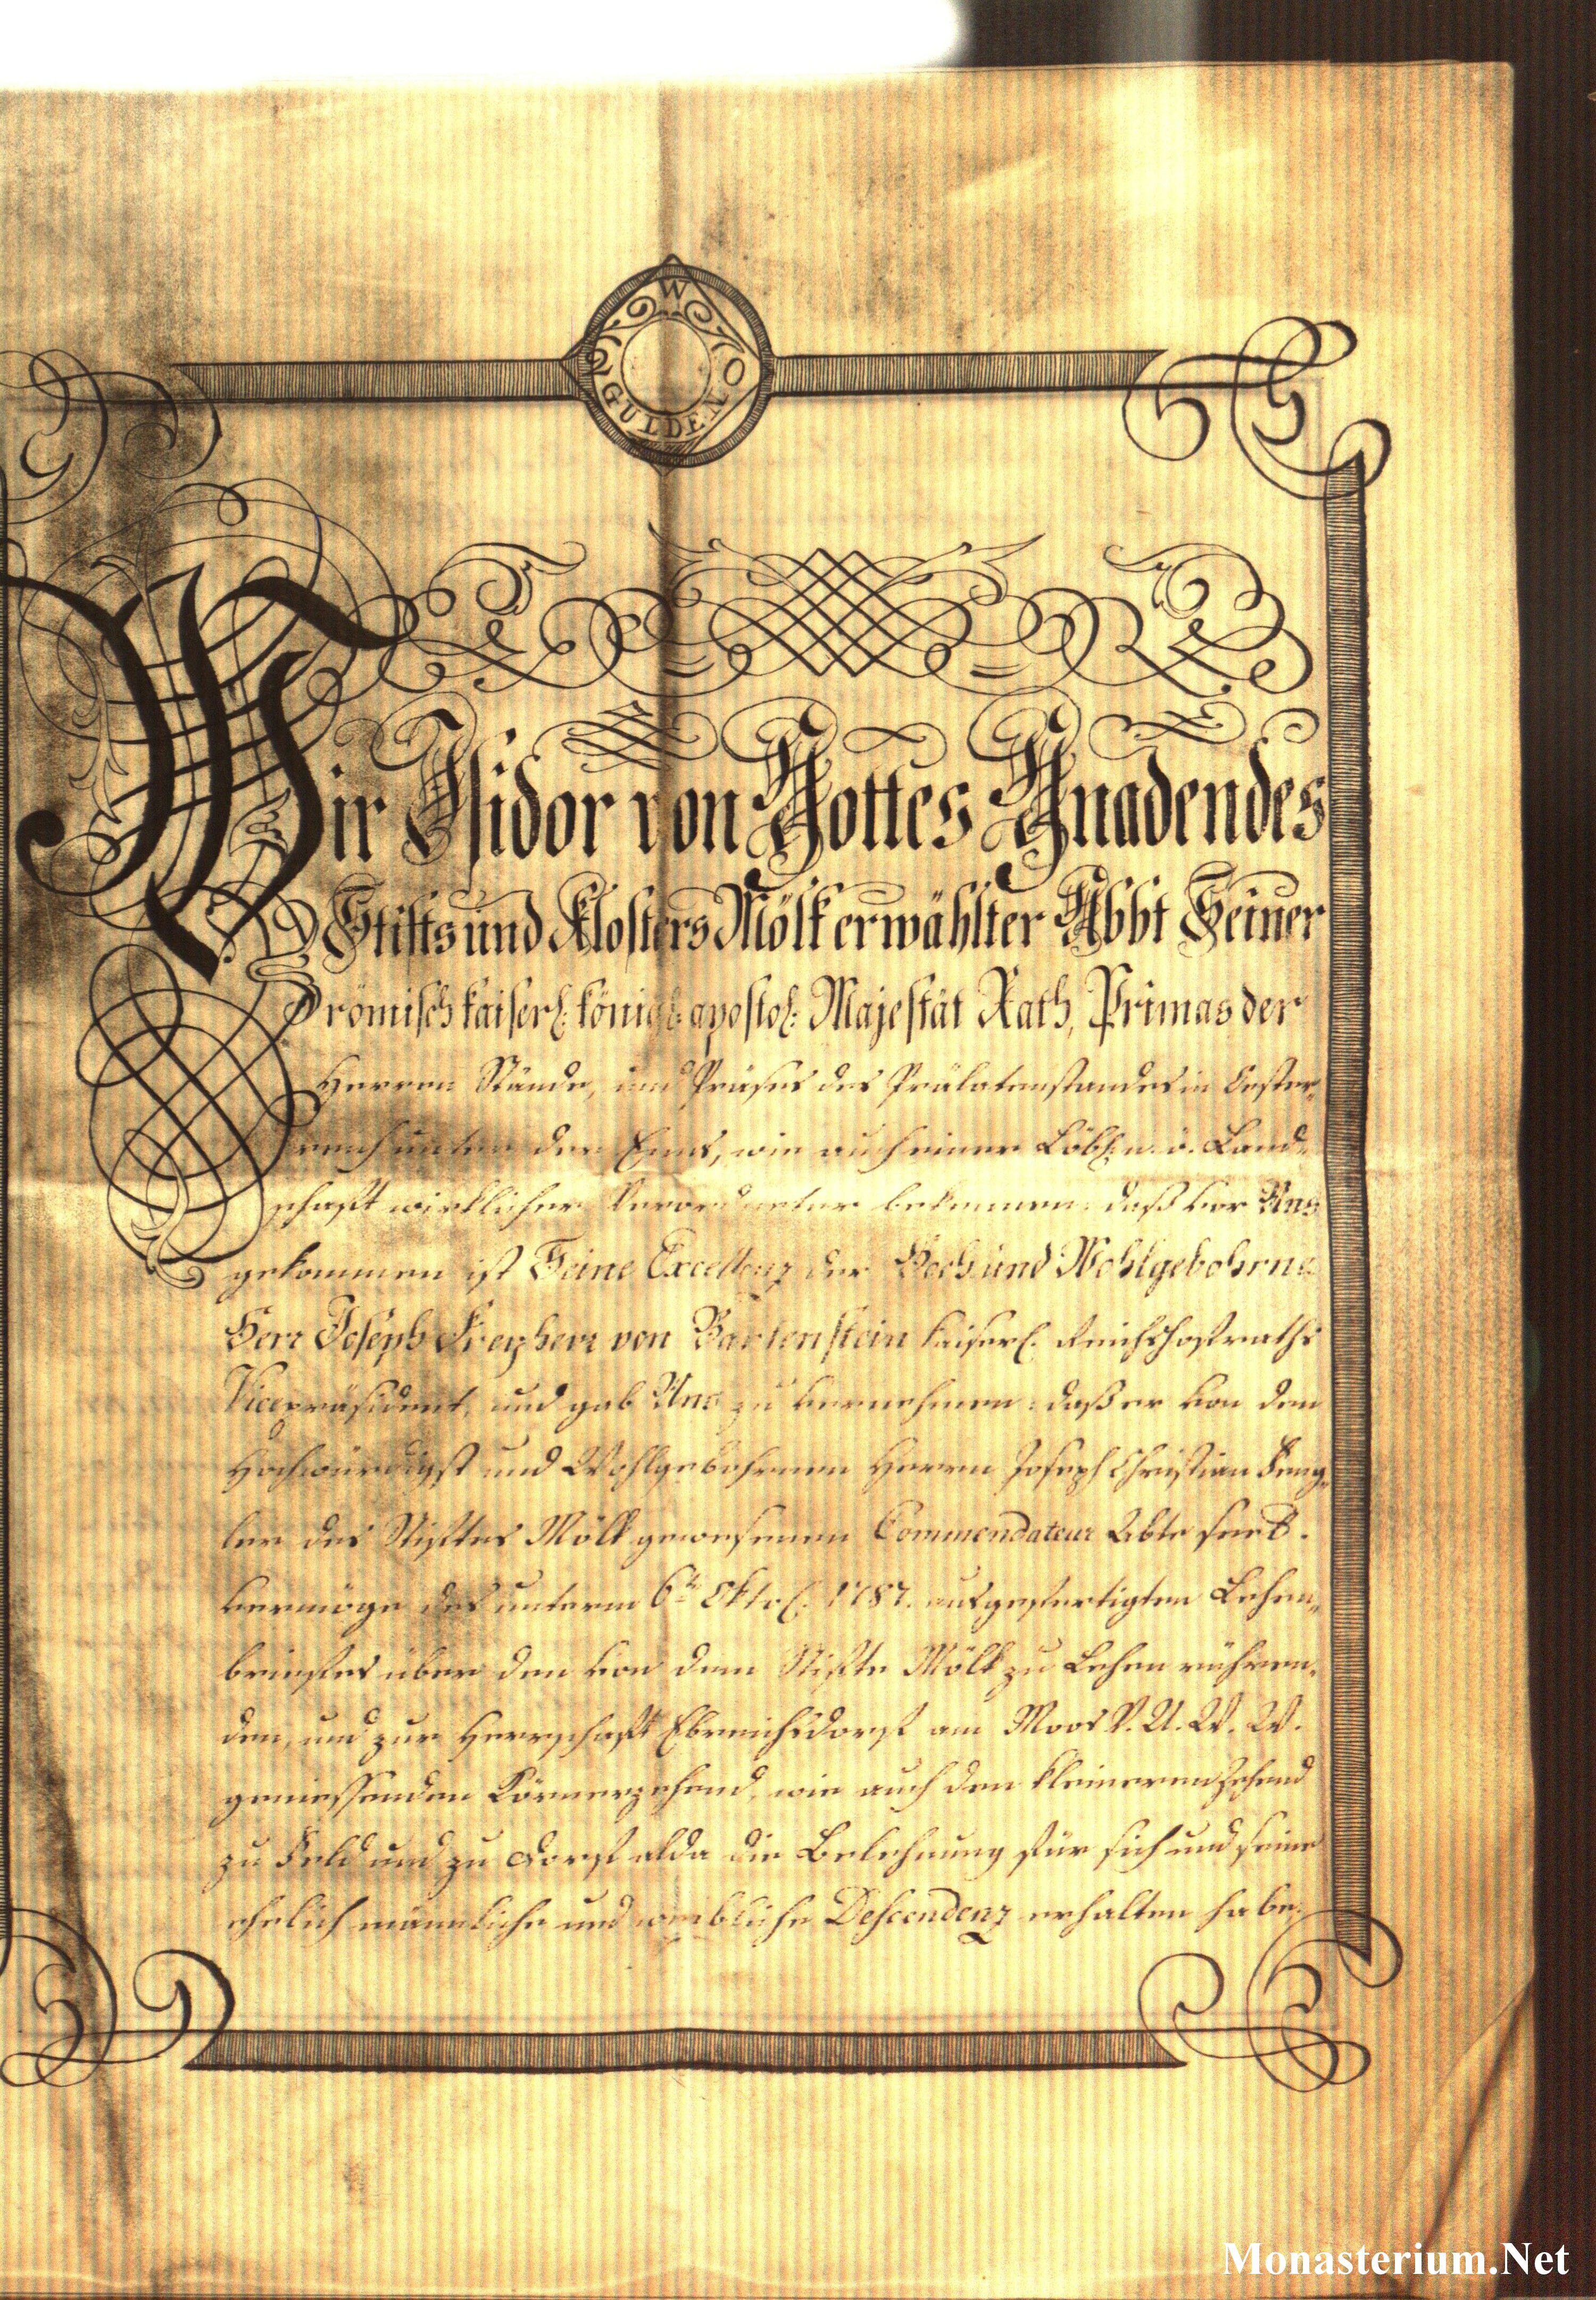 W
GULDEN
Wir Isidor von Gottes Gnaden des
Stifts und Klosters Mölk erwählter Abbt Seiner
römisch kaiserl: königl: apostol: Majestät Rath, Primas der
Herren Stände, und Präses des Prälatenstandes in Oester-
reich unter der Enns, wie auch einer Löbl: n: ö. Land-
schaft wirklicher Verordneter bekennen: daß vor Uns
gekommen ist Seine Excellenz der Hoch und Wohlgebohrne
Herr Joseph Freyherr von Bartenstein kaiserl. Reichshofraths
Vicepräsident, und gab Uns zu vernehmen: daß er von dem
Hochwürdigst und Wohlgebohrnen Herrn Joseph Christian
des Stiftes Mölk gewesenen Commendateur Abte
vermöge des unterm 6t. 1787. ausgefertigten Lehen-
briefes über den von dem Stifte Mölk zu Lehen rühren-
den, und zur Herrschaft Ebreichsdorf am Moos V. U. W. W.
geniessenden Körnerzehend, wie auch den kleineren Zehend
zu Feld und zu Dorf alda die Belehnung für sich und seine
ehelich männliche und weibliche Descendenz erhalten habe.
Monasterium.Net